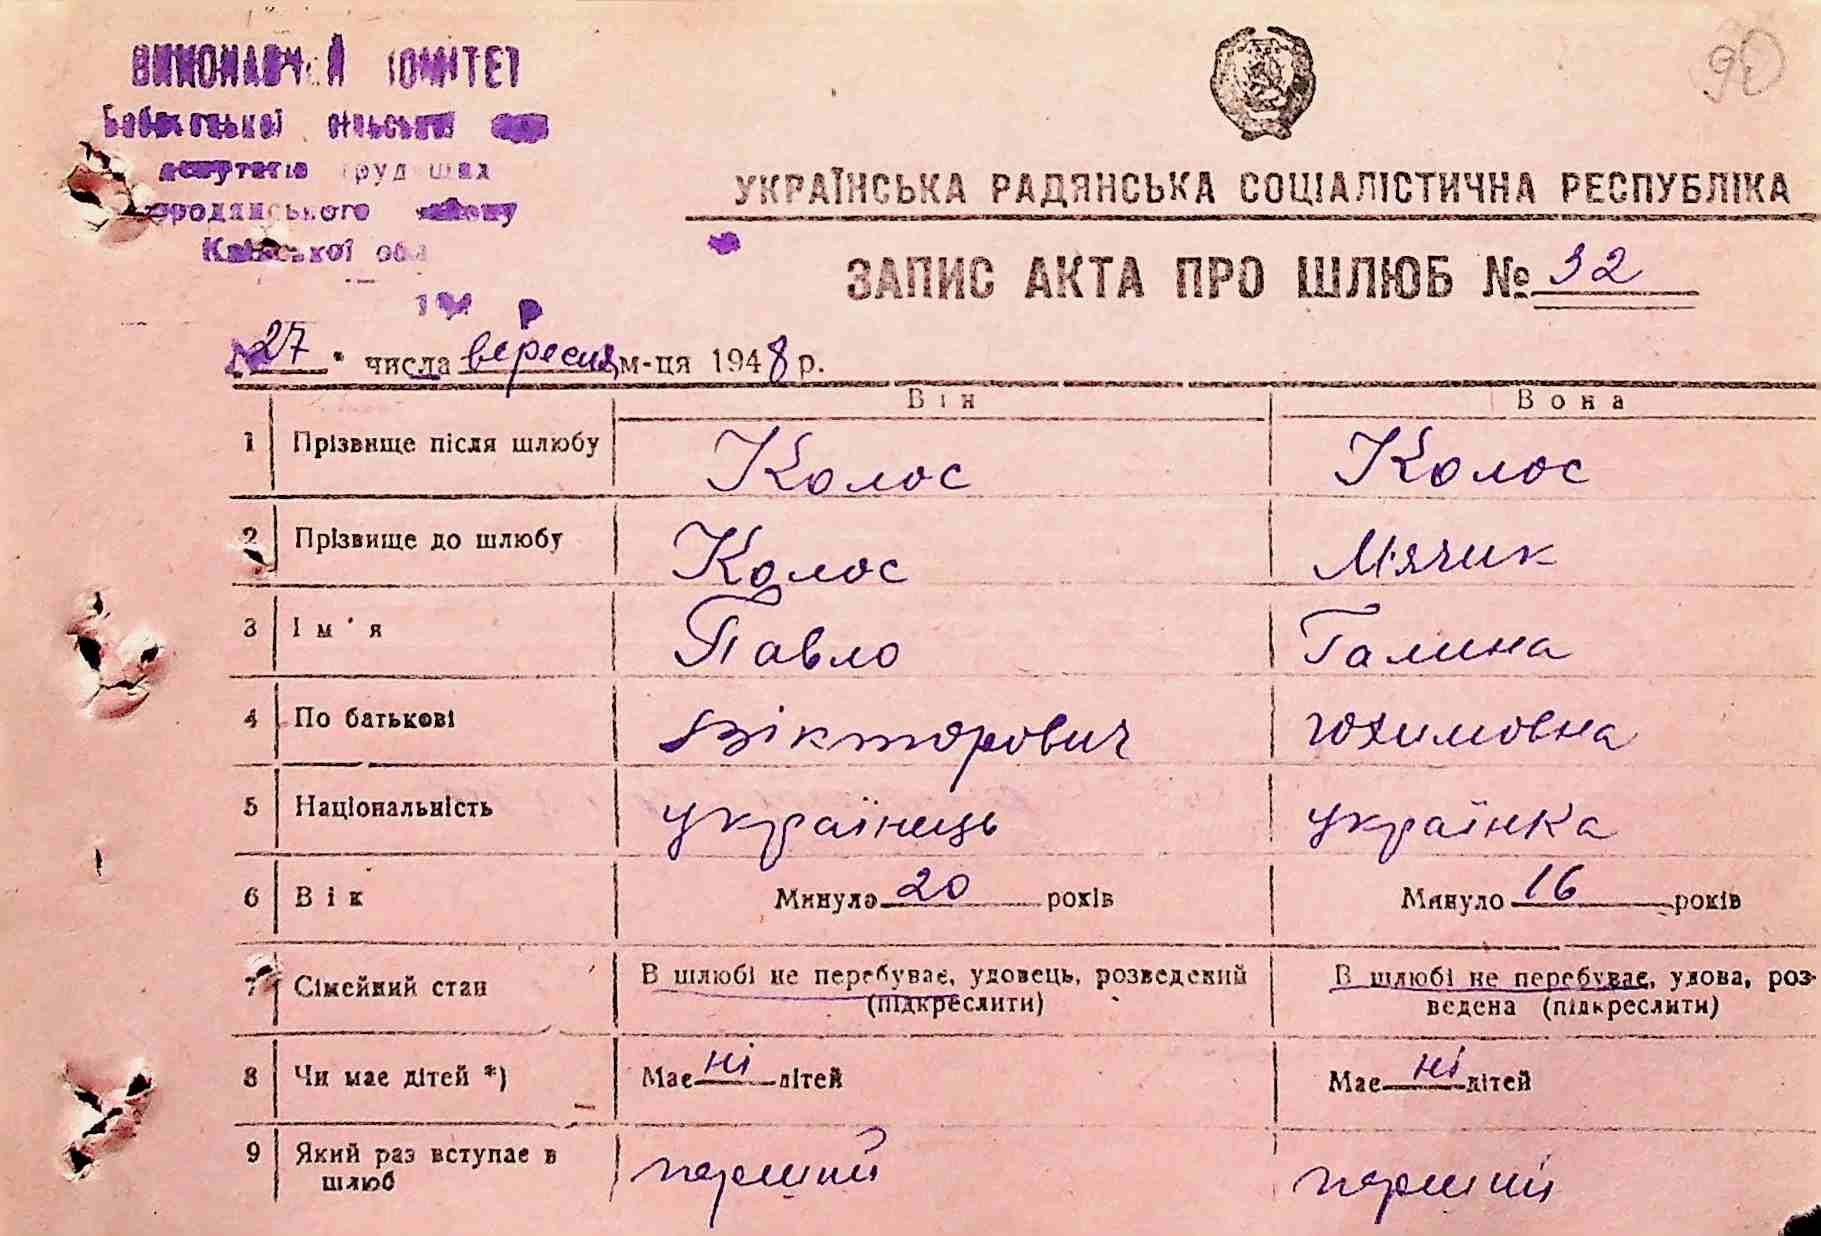 ВИКОНАВЧИЙ КОМІТЕТ
сільської
депутатів трудящих
Бородянського району
Київської обл
194 р
90
УКРАЇНСЬКА РАДЯНСЬКА СОЦІАЛІСТИЧНА РЕСПУБЛІКА
ЗАПИС АКТА ПРО ШЛЮБ № 32
27 " числа вересня м-ця 1948 р.
Він Вона
1 Прізвище після шлюбу Колос Колос
2 Прізвище до шлюбу Колос М'ячик
3 Ім'я Павло Галина
4 По батькові Вікторович Юхимовна
5 Національність українець українка
6 Вік Минуло 20 років Минуло 16 років
7 Сімейний стан В шлюбі не перебуває, удовець, розведений В шлюбі не перебуває, удова, роз-
(підкреслити) ведена (підкреслити)
8 Чи має дітей *) Має ні дітей Має ні дітей
9 Який раз вступає в перший перший
шлюб